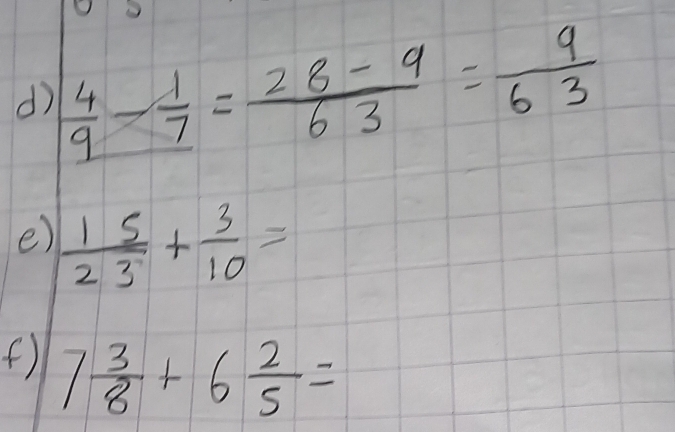 d) 4/9 - 1/7 = 28-9/63 = 9/63
e) 15/23 + 3/10 =
f) 7 3/8 + 6 2/5 =